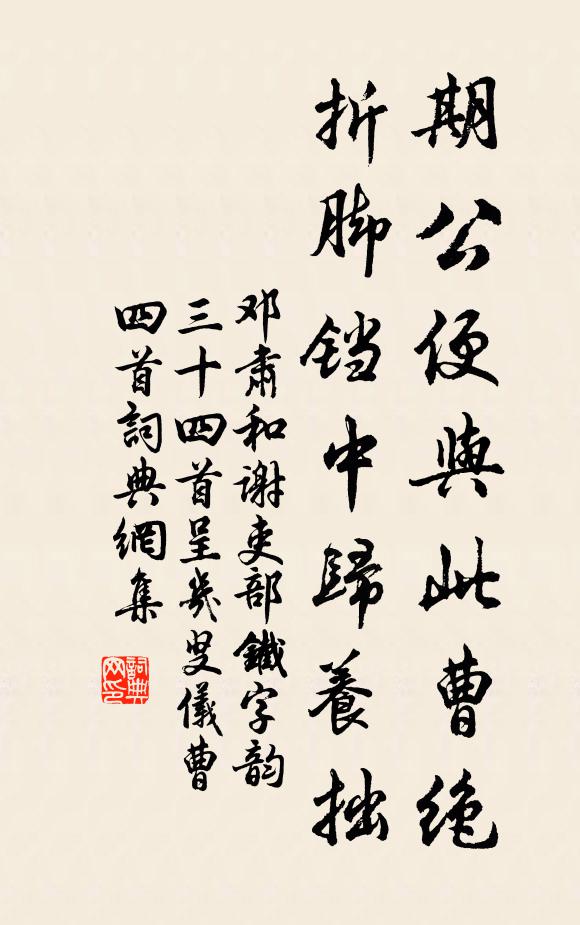 期公便與此曹絶
折脚铛中歸養拙
邓肃和谢吏部鐵字韵
三十四首呈幾叟儀曹
四首詞典網集
詞典网印